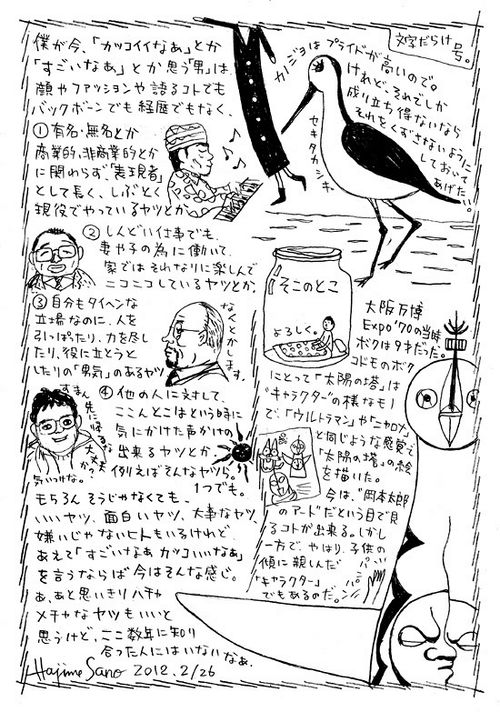 文字だらけ号。
僕が今、「カッコイイなぁ」とか
「すごいなぁ」とか思う「男」は、
顔やファッションや語るコトでも
バックボーンでも経歴でもなく、
①有名・無名とか
商業的、非商業的とか
に関わらず「表現者」
として長く、しぶとく
現役でやっているヤツとか、
②しんどい仕事でも、
妻や子の為に働いて、
家ではそれなりに楽しんで
ニコニコしているヤツとか、
③自分もタイヘンな
立場なのに、人を
引っぱったり、力を尽し
たり、役に立とうと
したりの「男気」のあるヤツ
なんとかします。
④他の人に対して、
ここんとこはという時に
気にかけた声かけの
出来るヤツとか。
例えばそんなヤツら。
1つでも。
すまん
先に帰るな
大丈夫か?
気いつけな。
もちろん そうじゃなくても、
いいヤツ、面白いヤツ、大事なヤツ、
嫌いじゃないヒトもいるけれど、
あえて「すごいなぁ カッコいいなぁ」
を言うならば 今はそんな感じ。
あ、あと思いきりハチャ
メチャなヤツもいいと
思うけど、ここ数年に知り
合った人にはいないなぁ。
Hajime Sano 2012.2/26
カノジョはプライドが高いので。
けれど、それでしか
成り立ち得ないなら
それをくずさないように
しておいて
あげたい。
セキタカシギ
そこのとこ
よろしく。
大阪万博
Expo'70の当時
ボクは9才だった。
コドモのボク
にとって「太陽の塔」は
"キャラクター"の様なモノ
で、「ウルトラマン」や「ニャロメ」
と同じような感覚で
「太陽の塔」の絵
を描いた。
今は、"岡本太郎
のアート"だという目で見
るコトが出来る。しかし
一方で、やはり、子供の
傾に親しんだ
「キャラクター」
でもあるのだ。
パパーン